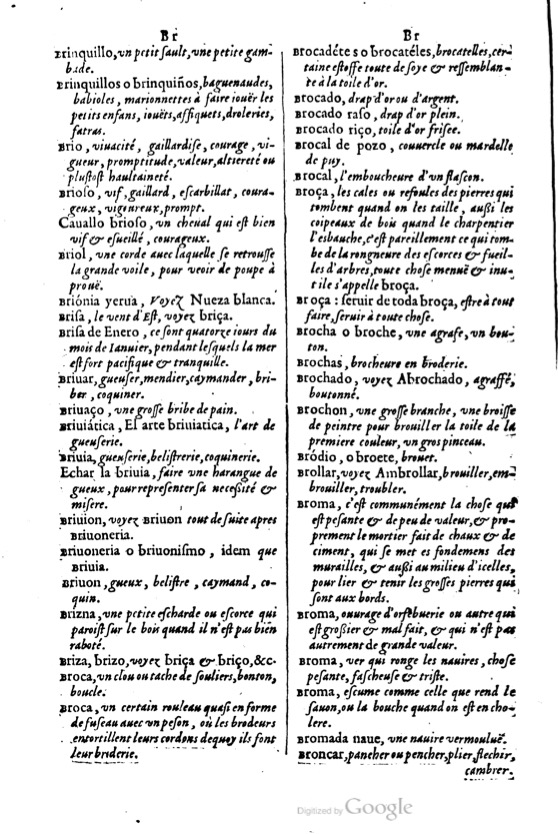 Br
Brinquillo, vn petit sault, vne petite gam-
bade.
Brinquillos o brinquiños, baguenaudes,
babioles, marionnettes à faire iouër les
petits enfans, iouëts, affiquets, droleries,
fatras.
Brio, viuacité, gaillardise, courage, vi-
gueur, promptitude, valeur, altiereté ou
plustost haultaineté.
Brioso, vif, gaillard, escarbillat, coura-
geux, vigoureux, prompt.
Cauallo brioso, vn cheual qui est bien
vif & esueillé, courageux.
Briol, vne corde auec laquelle se retrousse
la grande voile, pour veoir de poupe à
prouë.
Briónia yerua, Voyez Nueza blanca.
Brisa, le vent d'Est, voyez briça.
Brisa de Enero, ce sont quatorze iours du
mois de Ianuier, pendant lesquels la mer
est fort pacifique & tranquille.
Briuar, gueuser, mendier, caymander, bri-
ber, coquiner.
Briuaço, vne grosse bribe de pain.
Briuiática, El arte briuiatica, l'art de
gueuserie.
Briuia, gueuserie, belistrerie, coquinerie.
Echar la briuia, faire vne harangue de
gueux, pour representer sa necessité &
misere.
Briuion, voyez Briuon tout de suite apres
Briuoneria.
Briuoneria o briuonismo, idem que
Briuia.
Briuon, gueux, belistre, caymand, co-
quin.
Brizna, vne petite escharde ou escorce qui
paroist sur le bois quand il n'est pas bien
raboté.
Briza, brizo, voyez briça & briço, &c.
Broca, vn clou ou tache de souliers, bouton,
boucle.
Broca, vn certain rouleau quasi en forme
de fuseau auec vn peson, où les brodeurs
entortillent leurs cordons dequoy ils font
leur broderie.
Br
Brocadéte s o brocatéles, brocatelles, cer-
taine estoffe toute de soye & ressemblan-
te à la toile d'or.
Brocado, drap d'or ou d'argent.
Brocado raso, drap d'or plein.
Brocado riço, toile d'or frisee.
Brocal de pozo, couuercle ou mardelle
de puy.
Brocal, l'emboucheure d'vn flascon.
Broça, les cales ou refoules des pierres qui
tombent quand on les taille, aussi les
coipeaux de bois quand le charpentier
l'esbauche, c'est pareillement ce qui tom-
be de la rongneure des escorces & fueil-
les d'arbres, toute chose menuë & inu-
tile s'appelle broça.
Broça: seruir de toda broça, estre à tout
faire, seruir à toute chose.
Brocha o broche, vne agrafe, vn bou-
ton.
Brochas, brocheure en broderie.
Brochado, voyez Abrochado, agraffé,
boutonné.
Brochon, vne grosse branche, vne broisse
de peintre pour brouiller la toile de la
premiere couleur, vn gros pinceau.
Bródio, o broete, brouet.
Brollar, voyez Ambrollar, brouiller, em-
brouiller, troubler.
Broma, c'est communément la chose qui
est pesante & de peu de valeur, & pro-
prement le mortier fait de chaux & de
ciment, qui se met es fondemens des
murailles, & aussi au milieu d'icelles,
pour lier & tenir les grosses pierres qui
sont aux bords.
Broma, ouurage d'orfebuerie ou autre qui
est grossier & mal fait, & qui n'est pas
autrement de grande valeur.
Broma, ver qui ronge les nauires, chose
pesante, fascheuse & triste.
Broma, escume comme celle que rend le
sauon, ou la bouche quand on est en cho-
lere.
Bromada naue, vne nauire vermouluë.
Broncar, pancher ou pencher, plier, flechir,
cambrer.
Digitized by Google